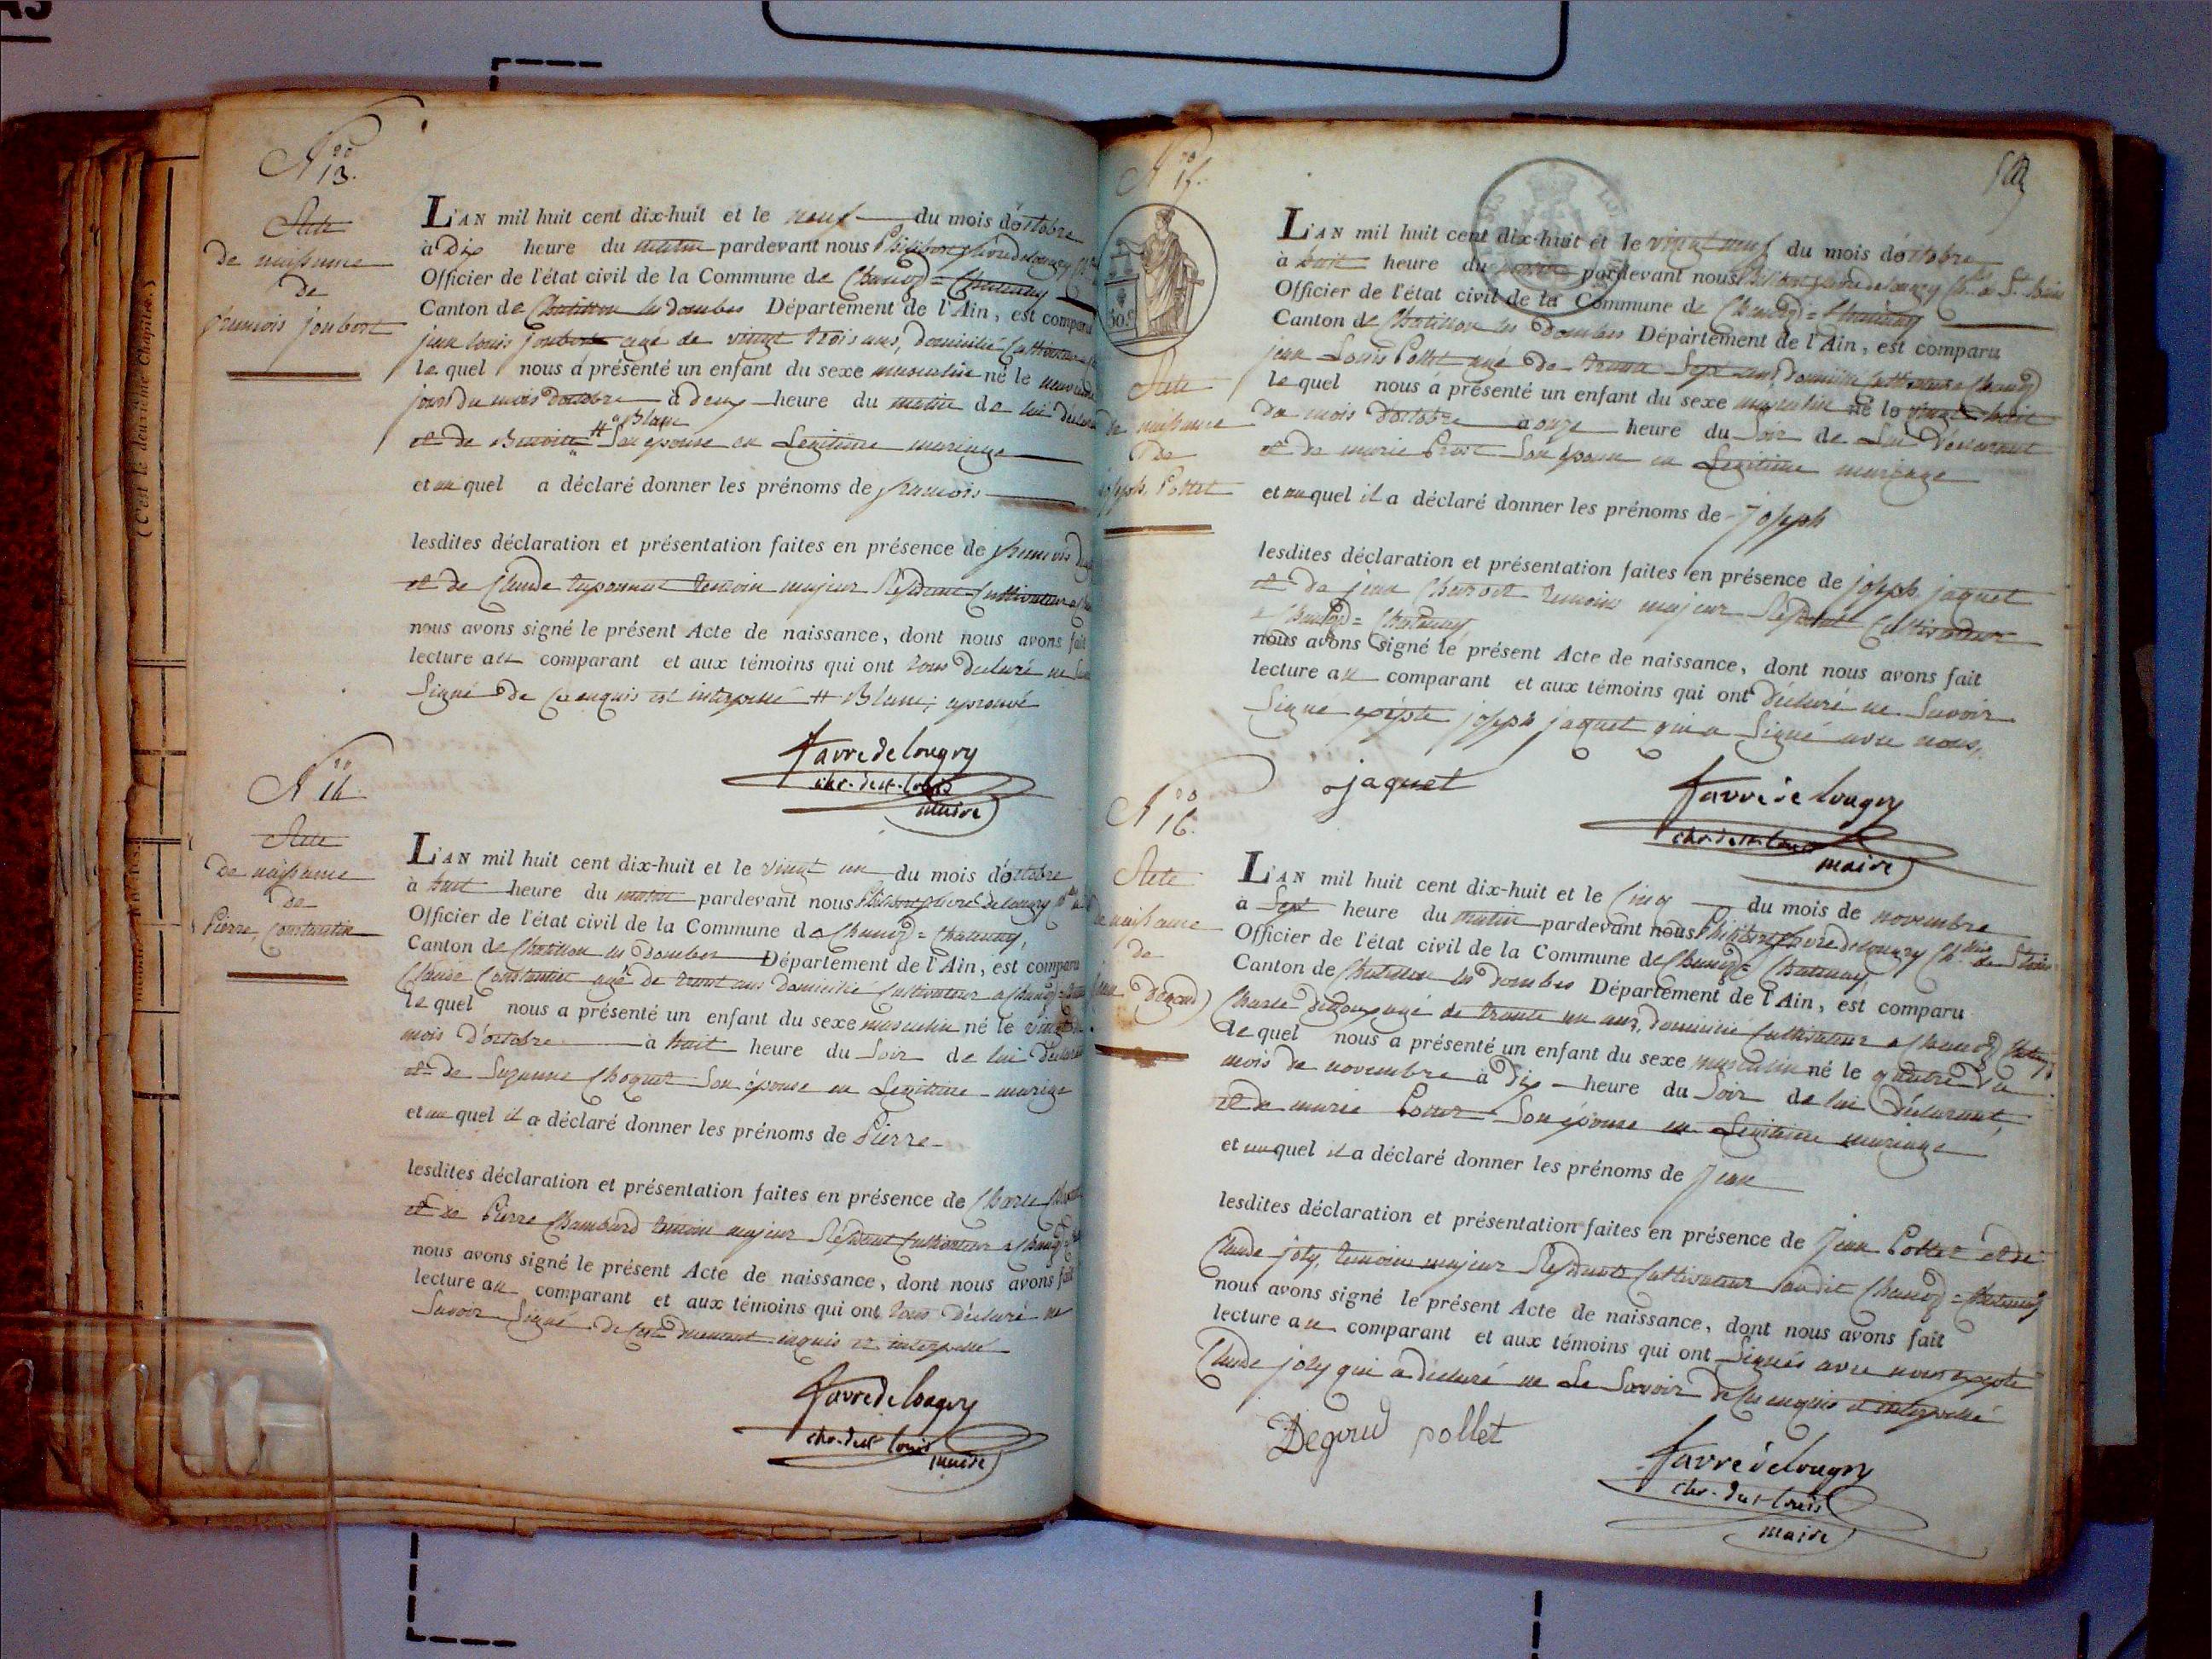 N.ro 13.
Acte
de naissance
de
francois joubert
L'AN mil huit cent dix-huit et le neuf du mois d'octobre
à Dix heure du matin pardevant nous Philibert favre de longry
Officier de l'état civil de la Commune de Chaneÿ = Chatenay
Canton de Chatillon les dombes Département de l'Ain, est comparu
jean louis joubert agé de vingt trois ans, domicilié Cultivateur
le quel nous à présenté un enfant du sexe masculin né le neuvieme
jour du mois d'octobre à deux heure du matin de lui déclarant
et de Benoite # Blanc Son epouse en Legitime mariage
et au quel a déclaré donner les prénoms de francois
lesdites déclaration et présentation faites en présence de francois
et de Claude temoin majeur Résidant Cultivateur
nous avons signé le présent Acte de naissance, dont nous avons fait
lecture au comparant et aux témoins qui ont tous declaré ne
Signé de Ce enquis et interpellé # Blanc; aprouvé
favre de longry
chr. de st. louis
maire
N.ro 14.
Acte
de naissance
de
Pierre Constantin
L'AN mil huit cent dix-huit et le vingt un du mois d'octobre
à huit heure du matin pardevant nous Philibert favre de longry
Officier de l'état civil de la Commune de = Chatenay,
Canton de Chatillon les dombes Département de l'Ain, est comparu
Claude Constantin agé de trent ans domicilié Cultivateur a
le quel nous a présenté un enfant du sexe masculin né le vingt
mois d'octobre à huit heure du Soir de lui déclarant
et de Suzanne Choquet Son épouse en Legitime mariage
et au quel il a déclaré donner les prénoms de Pierre
lesdites déclaration et présentation faites en présence de Charle
et de Pierre Chambard temoin majeur Résidant Cultivateur a
nous avons signé le présent Acte de naissance, dont nous avons fait
lecture au comparant et aux témoins qui ont tous Déclaré ne
Savoir Signé de Ceste duement enquis et interpellé
favre de longry
chr. de st louis
maire
N.ro 15.
30.c
Acte
de naissance
de
joseph Pollet
L'AN mil huit cent dix-huit et le vingt neuf du mois d'octobre
à huit heure du pardevant nous Philibert favre de longry Ch. de St. louis
Officier de l'état civil de la Commune de = Chatenay
Canton de Chatillon les Dombes Département de l'Ain, est comparu
jean Louis Pollet agé de trente Sept ans, domicilié Cultivateur a
le quel nous à présenté un enfant du sexe masculin né le vingt huit
du mois d'octobre à onze heure du Soir de Lui Déclarant
et de marie Prost Son épouse en Legitime mariage
et au quel il a déclaré donner les prénoms de Joseph
lesdites déclaration et présentation faites en présence de joseph jaquet
et de jean temoins majeur Résidant Cultivateur
a = Chatenay
nous avons signé le présent Acte de naissance, dont nous avons fait
lecture au comparant et aux témoins qui ont Déclaré ne Savoir
Signé exepté joseph jaquet qui a Signé avec nous,
jaquet
favre de longry
chr. de st. louis
maire
N.ro 16.
Acte
de naissance
de
L'AN mil huit cent dix-huit et le Cinq du mois de novembre
à Sept heure du matin pardevant nous Philibert favre de longry Ch. de St louis
Officier de l'état civil de la Commune de = Chatenay
Canton de Chatillon les dombes Département de l'Ain, est comparu
Charle agé de trante un ans, domicilié Cultivateur a
le quel nous a présenté un enfant du sexe masculin né le quatre du
mois de novembre à Dix heure du Soir de lui Déclarant
et de marie Pollet Son épouse en Legitime mariage
et auquel il a déclaré donner les prénoms de Jean
lesdites déclaration et présentation faites en présence de Jean Pollet et de
Claude joly, temoins majeur Résidants Cultivateur audit = Chatenay
nous avons signé le présent Acte de naissance, dont nous avons fait
lecture au comparant et aux témoins qui ont Signés avec nous exepté
Claude joly qui a declaré ne Le Savoir de Ces enquis et interpellé
Degoud pollet
favre de longry
chr. de st louis
maire